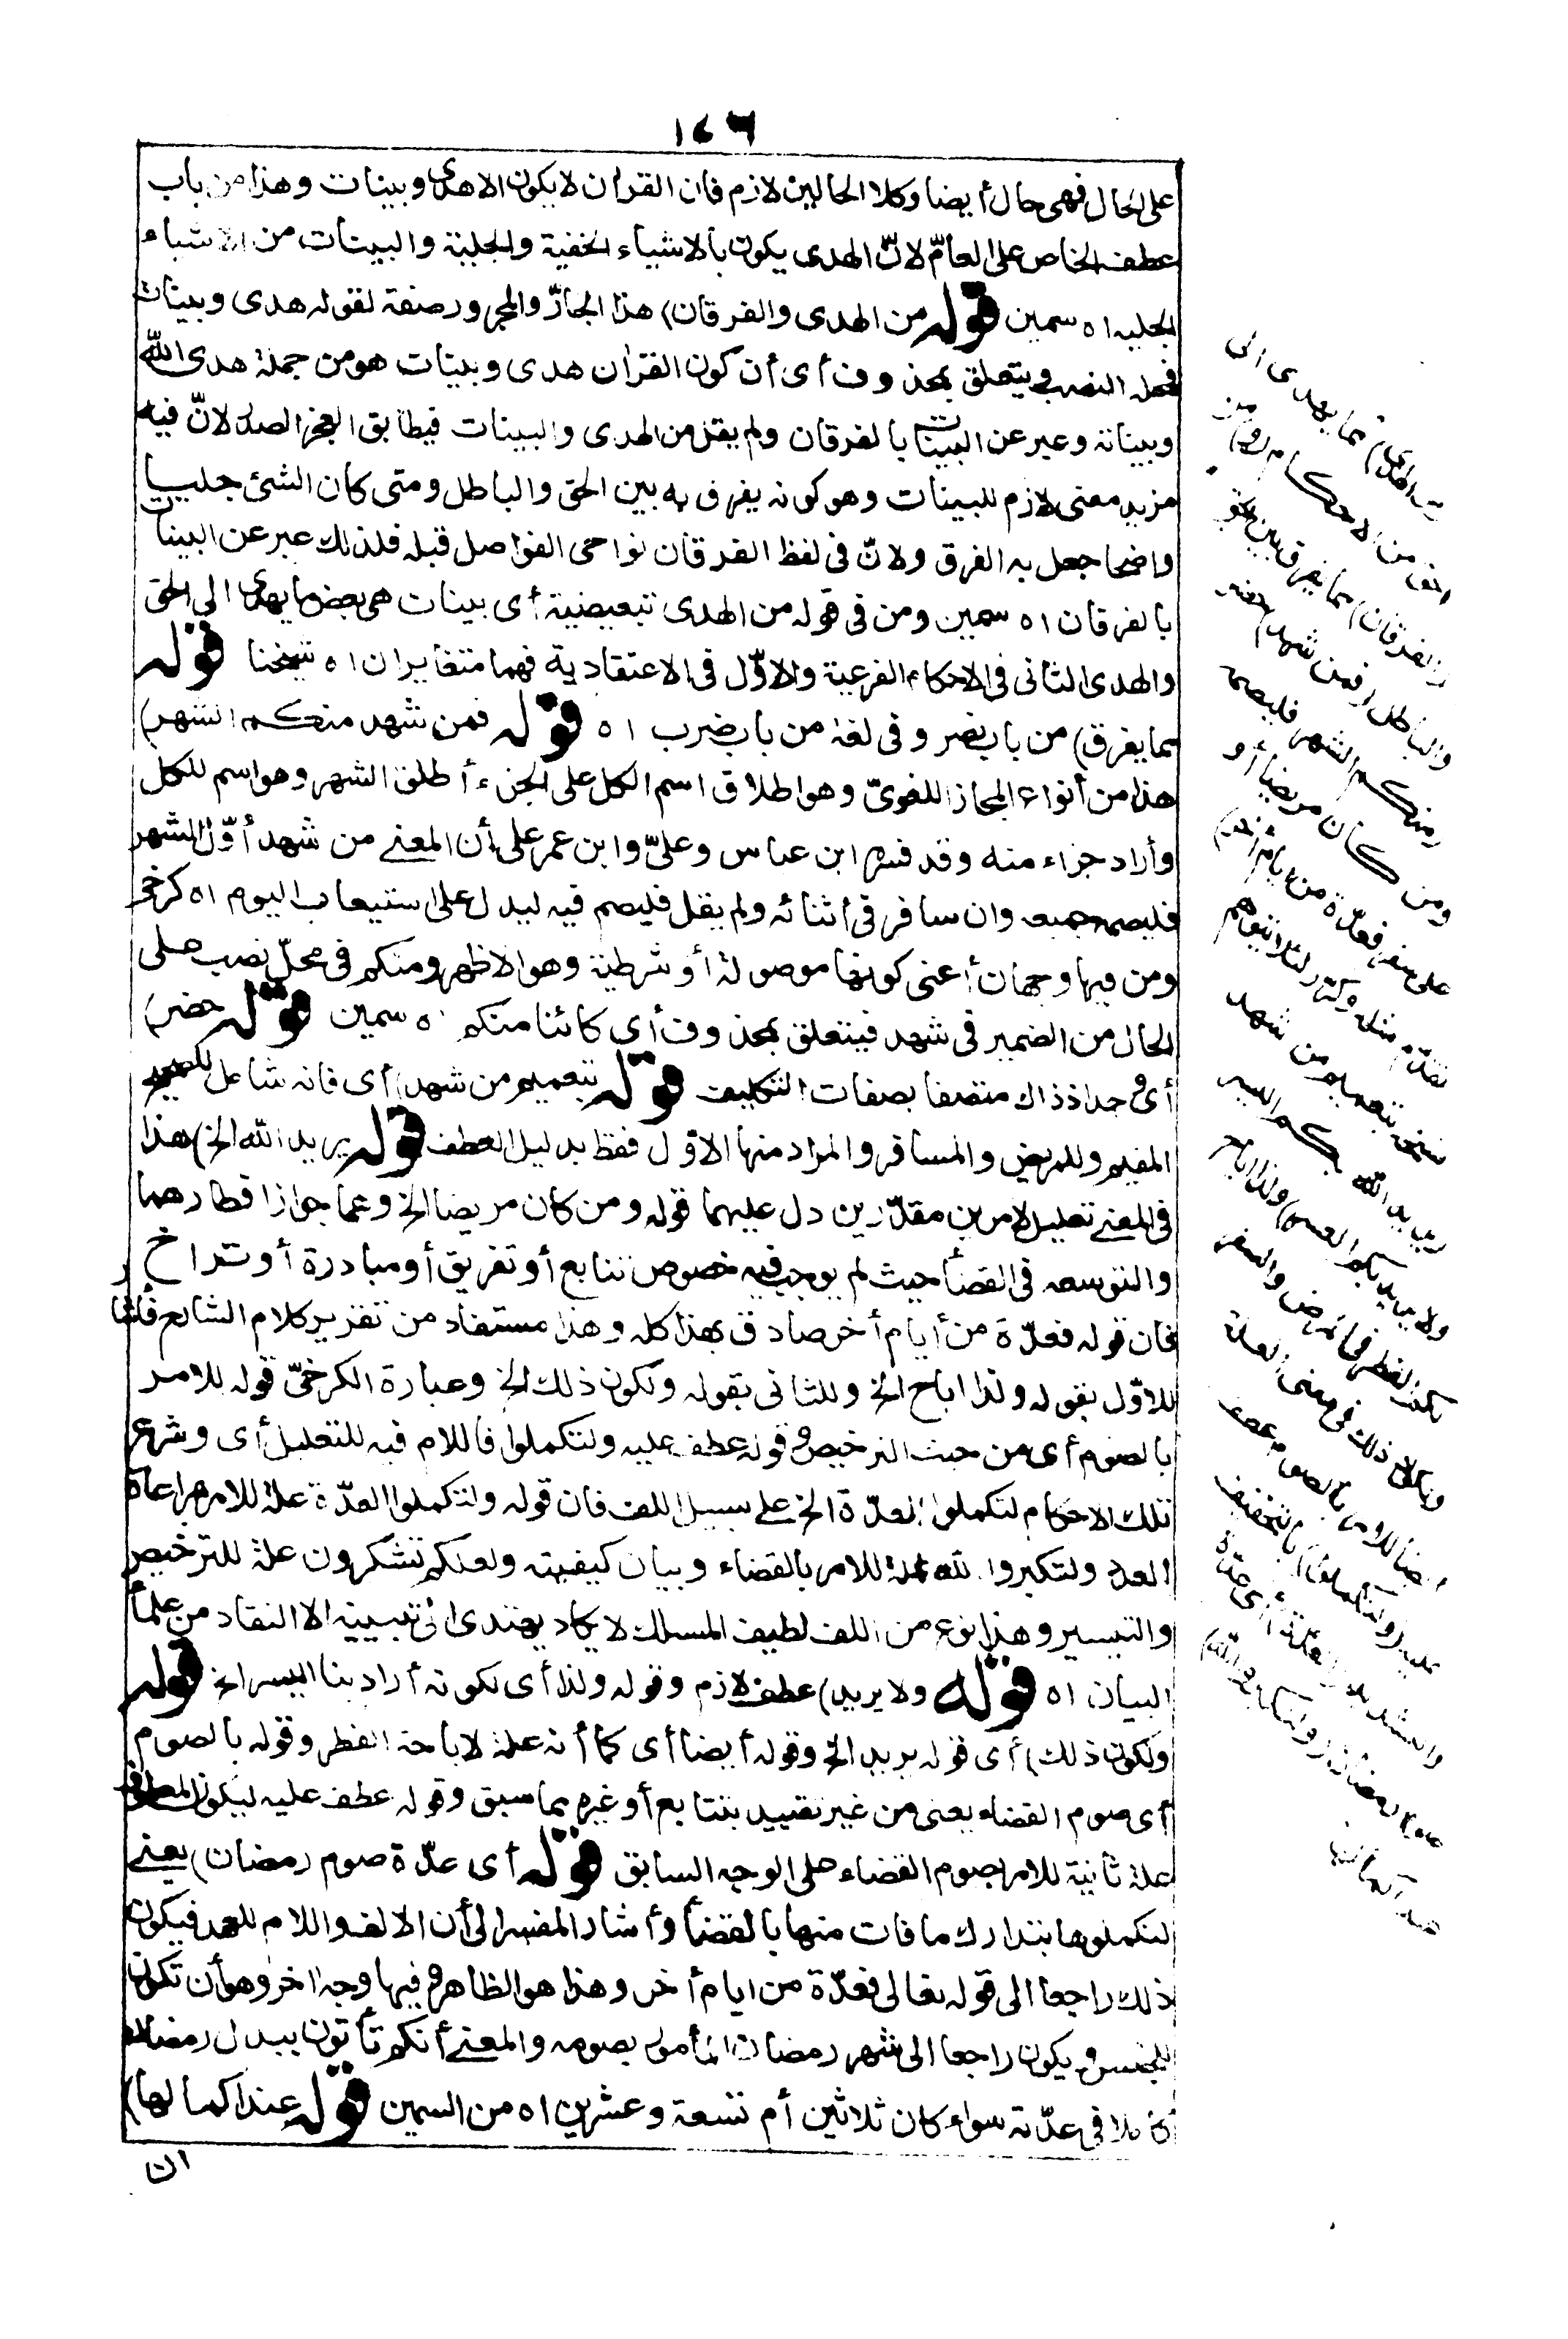 ١٤٦
على الحال فهى حال أيضا وكلا الحالين لازم فان القرآن لا يكون الا هدى وبينات وهذا من باب
عطف الخاص على العامّ لانّ الهدى يكون بالاشياء الخفية والجلية والبينات من الاشياء
الجلية اه سمين قوله من الهدى والفرقان) هذا الجارّ والمجرور صفة لقوله هدى وبينات
فمحله النصب ويتعلق بمحذوف أى أن كون القرآن هدى وبينات هو من جملة هدى الله
وبيناته وعبر عن البينات بالفرقان ولم يقل من الهدى والبينات فيطابق العجز الصدر لانّ فيه
مزيد معنى لازم للبينات وهو كونه يفرق به بين الحق والباطل ومتى كان الشئ جليا
واضحا جعل به الفرق ولانّ فى لفظ الفرقان نواخى الفواصل قبله فلذلك عبر عن البينات
بالفرقان اه سمين ومن فى قوله من الهدى تبعيضية أى بينات هى بعض ما يهدى الى الحق
والهدى الثانى فى الاحكام الفرعية والاوّل فى الاعتقادية فهما متغايران اه شيخنا قوله
مما يفرق) من باب نصر وفى لغة من باب ضرب اه قوله فمن شهد منكم الشهر)
هذا من أنواع المجاز اللغوىّ وهو اطلاق اسم الكل على الجزء أطلق الشهر وهو اسم للكل
وأراد جزاء منه وقد فسره ابن عباس وعلىّ وابن عمر على أن المعنى من شهد أوّل الشهر
فليصم جميعه وان سافر فى أثنائه ولم يقل فليصم فيه ليدل على استيعاب اليوم اه كرخى
ومن فيها وجهان أعنى كونها موصولة أو شرطية وهو الاظهر ومنكم فى محلّ نصب على
الحال من الضمير فى شهد فيتعلق بمحذوف أى كائنا منكم اه سمين قوله حضر)
أى وجد اذ ذاك متصفا بصفات التكليف قوله بتعميم من شهد) أى فانه شامل للصحيح
المقيم وللمريض والمسافر والمراد منها الاوّل فقط بدليل العطف قوله يريد الله الخ) هذا
فى المعنى تعليل لامرين مقدّرين دل عليهما قوله ومن كان مريضا الخ وهما جواز افطارهما
والتوسعة فى القضأ حيث لم يوجب فيه خصوص تتابع أو تفريق أو مبادرة أو تراخ
فان قوله فعدّة من أيام أخر صادق بهذا كله وهذا مستفاد من تقرير كلام الشارح فأشار
للاوّل بقوله ولذا اباح الخ وللثانى بقوله ولكون ذلك الخ وعبارة الكرخىّ قوله للامر
بالصوم أى من حيث الترخيص وقوله عطف عليه ولتكملوا فاللام فيه للتعليل أى وشرع
تلك الاحكام لتكملوا العدّة الخ على سبيل اللف فان قوله ولتكملوا العدّة علة للامر بمراعاة
العدة ولتكبروا الله علة للامر بالقضاء وبيان كيفيته ولعلكم تشكرون علة للترخيص
والتيسير وهذا نوع من اللف لطيف المسلك لا يكاد يهتدى الى تبيينه الا النقاد من علمأ
البيان اه قوله ولا يريد) عطف لازم وقوله ولذا أى لكونه أراد بنا اليسر الخ قوله
ولكون ذلك) أى قوله يريد الخ وقوله أيضا أى كما أنه علة لاباحة الفطر وقوله بالصوم
أى صوم القضاء يعنى من غير تقييد بتتابع أو غيره مما سبق وقوله عطف عليه ليكون المعطوف
علة ثانية للامر بصوم القضاء على الوجه السابق قوله أى عدّة صوم رمضان) يعنى
لتكملوها بتدارك ما فات منها بالقضأ وأشار المفسر الى أن الالف واللام للعهد فيكون
ذلك راجعا الى قوله تعالى فعدّة من ايام أخر وهذا هو الظاهر وفيها وجه اخر وهو أن تكون
للجنس ويكون راجعا الى شهر رمضان المأمور بصومه والمعنى أنكم تأتون ببدل رمضان
كاملا فى عدّته سواء كان ثلاثين أم تسعة وعشرين اه من السمين قوله عند اكمالها)
من الهدى) مما يهدى الى
الحق من الاحكام (و) من
(الفرقان) مما يفرق بين الحق
والباطل (فمن شهد) حضر
(منكم الشهر فليصمه
ومن كان مريضا أو
على سفر فعدّة من أيام أخر)
تقدّم مثله وكرر لئلا يتوهم
نسخه بتعميم من شهد
(يريد الله بكم اليسر
ولا يريد بكم العسر) ولذا اباح
لكم الفطر فى المرض والسفر
ولكون ذلك فى معنى العلة
أيضا للامر بالصوم عطف
عليه (ولتكملوا) بالتخفيف
والتشديد (العدّة) أى عدّة
صوم رمضان (ولتكبروا الله)
عند اكمالها